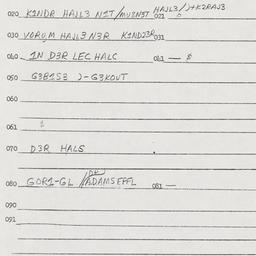 020 K1NDR HAJL3 N1T/MU2N3T 021 HAJL3/)+K2RAJ3
030 VORUM HAJL3N3R K1ND23R 031
040 1N D3R LEC HALC 041 — $
050 G3B1S3 )-G3KOUT
060
061 1
070 D3R HALS
080 GOR1-GL //ADAMSEFFL 081 —
090
091